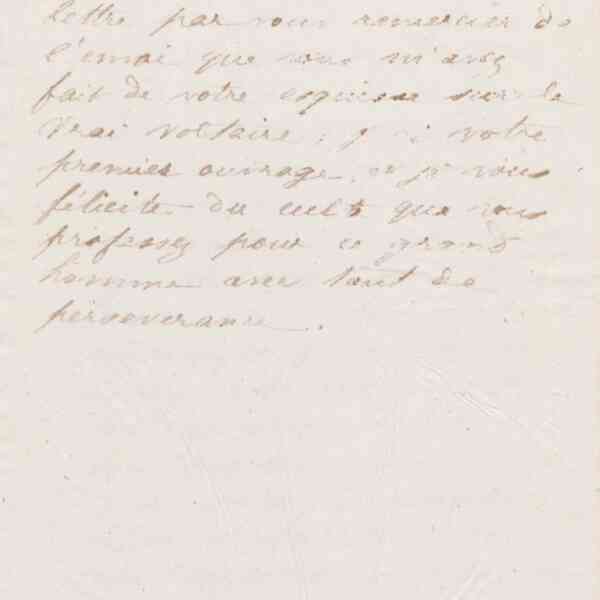 lettre par vous remercier de
l'envoi que vous m'avez
fait de votre esquisse sur le
vrai voltaire ; j'ai votre
premier ouvrage, et je vous
félicite du culte que vous
professez pour ce grand
homme avec tant de
perseverance.